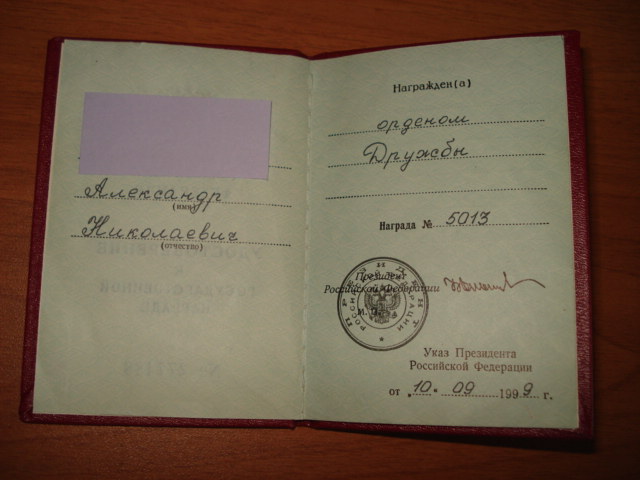 Александр
(имя)
Николаевич
(отчество)
Награжден(а)
орденом
Дружбы
Награда № 5013
Президент
Российской Федерации
М.П.
Указ Президента
Российской Федерации
от „10„ 09 1999 г.